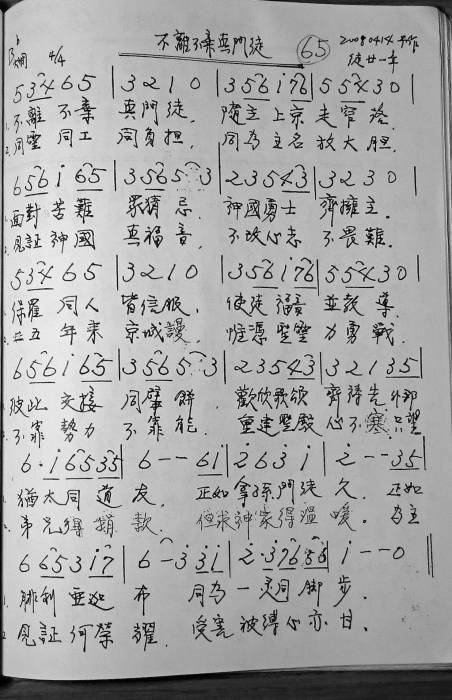 不離不棄真門徒 65 20090414
4/4 徒廿一章
5 3 2 4 6 5 | 3 2 1 0 | 3 5 6 i 7 6 | 5 5 4 3 0 |
1. 不離 不棄 真門徒, 隨主上京走窄路.
2. 同靈 同工 同負担, 同為主名放大胆.
6 5 6 i 6 5 | 3 5 6 5 · 3 | 2 3 5 4 3 | 3 2 3 0 |
面對苦難 眾猜忌. 神國勇士 齊擁主.
見証神國 真福音, 不改心志 不畏難.
5 3 4 6 5 | 3 2 1 0 | 3 5 6 i 7 6 | 5 5 4 3 0 |
保羅同人 皆信服, 使徒福音 並教導.
廿五年来 京城謾. 惟憑聖靈力勇戰.
6 5 6 i 6 5 | 3 5 6 5 · 3 | 2 3 5 4 3 | 3 2 1 3 5 |
彼此交接 同擘餅. 歡欣歌頌 齊禱告.
不靠勢力 不靠能. 重建聖殿心不寒 只望
6 · i 6 5 3 5 | 6 - - 6 i | 2 6 3 i | 2 - - 3 5 |
猶太同道 友, 正如拿孫門徒久, 正如
弟兄得捐 款. 但求神家得溫暖. 為主
6 6 5 3 i 7 | 6 - 3 3 i | 2 · 3 7 6 5 6 | i - - 0 ‖
1. 腓利亞迦布 同為一灵同脚步.
2. 見証何榮耀. 受害被縛心亦甘.